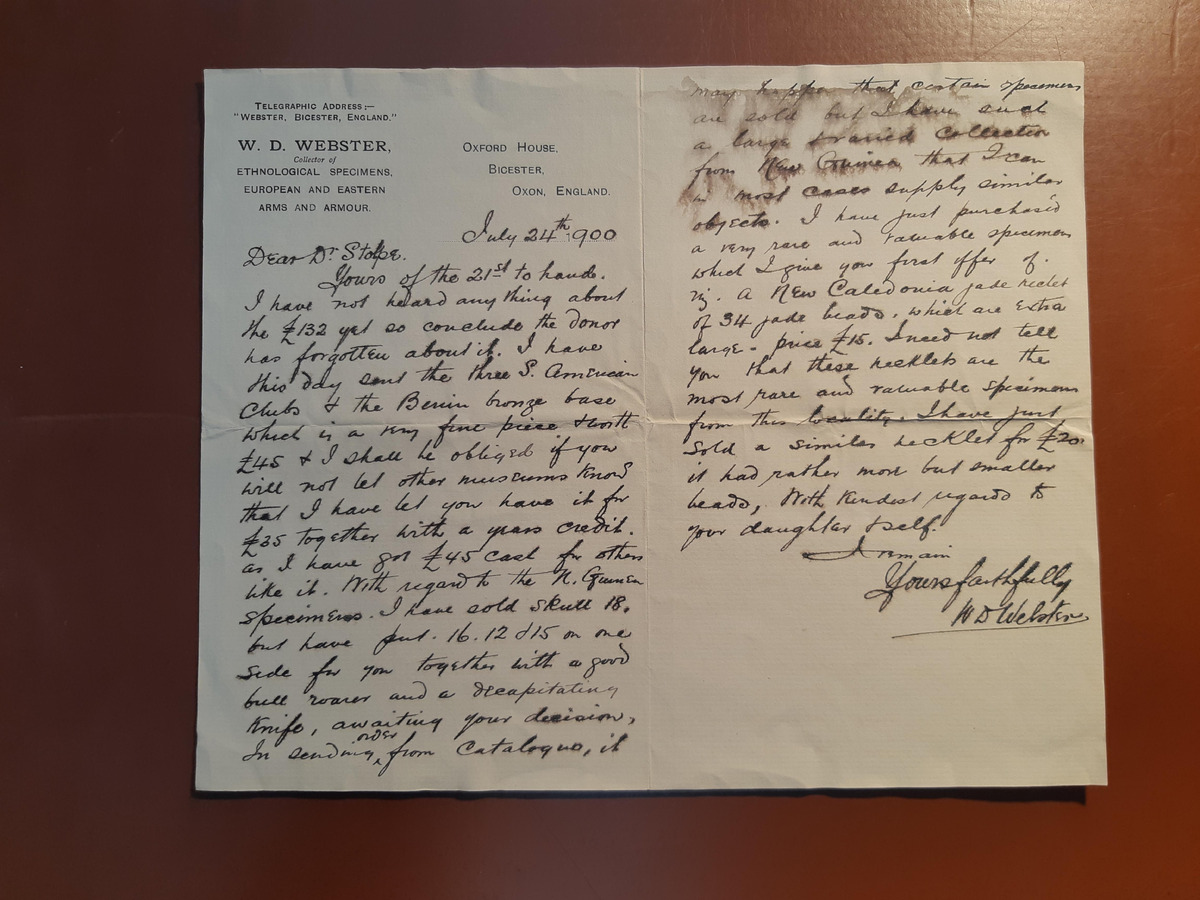 TELEGRAPHIC ADDRESS;—
"WEBSTER, BICESTER, ENGLAND."
W. D. WEBSTER,
Collector of
ETHNOLOGICAL SPECIMENS,
EUROPEAN AND EASTERN
ARMS AND ARMOUR.
OXFORD HOUSE,
BICESTER,
OXON, ENGLAND.
July 24th 1900
Dear Dr Stolpe.
Yours of the 21st to hande.
I have not heard anything about
the £132 yet so conclude the donor
has forgotten about it. I have
this day sent the three S. American
Clubs & the Benin bronze base
which is a very fine piece & worth
£45 & I shall be obliged if you
will not let other museums know
that I have let you have it for
£35 together with a years credit.
as I have got £45 cash for others
like it. With regard to the N. Guinea
specimens. I have sold Skull 18.
but have put. 16. 12 & 15 on one
side for you together with a good
bull roarer and a decapitating
Knife, awaiting your decision,
In sending order from Catalogue, it
may happen that certain specimens
are sold but I have such
a large & varied Collection
from New Guinea that I can
in most cases supply similar
objects. I have just purchased
a very rare and valuable specimen
which I give you first offer of.
viz. A New Caledonia jade necklet
of 34 jade beads. which are extra
large - price £15. I need not tell
you that these necklets are the
most rare and valuable specimens
from this locality. I have just
sold a similar necklet for £20.
it had rather more but smaller
beads, With Kindest regards to
your daughter & self.
I remain
Yours faithfully
W D Webster